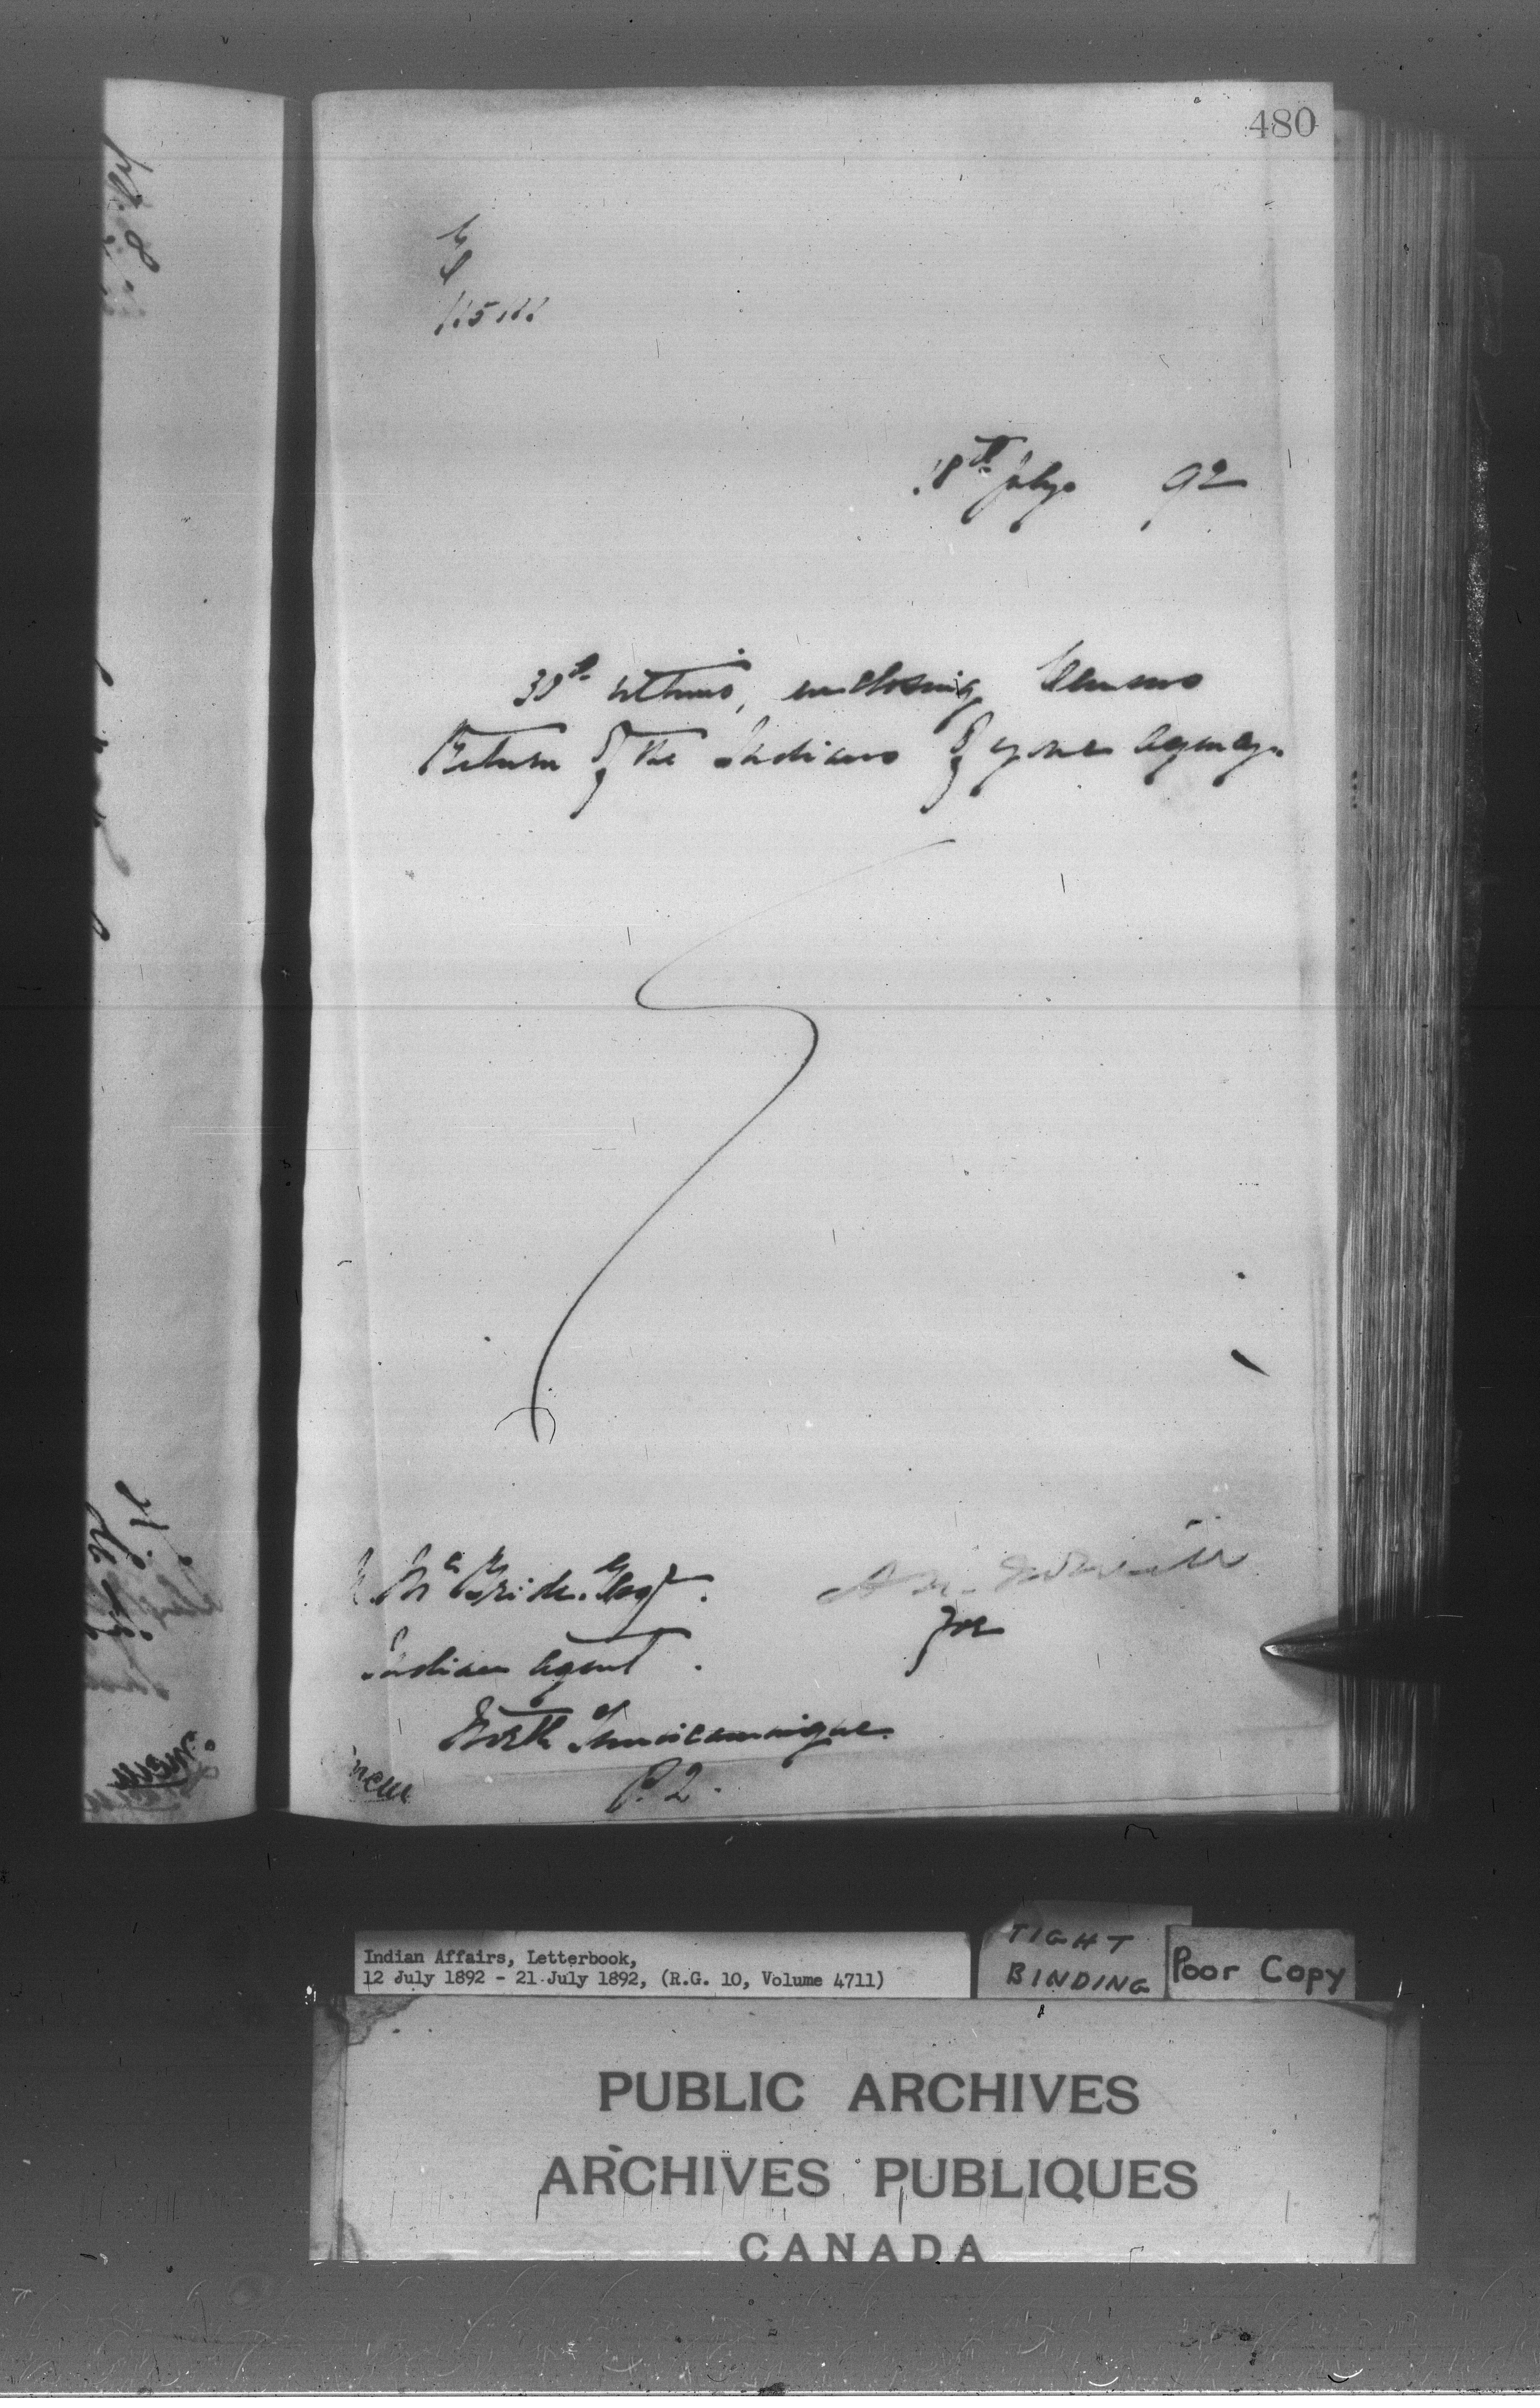 480
18th July 92
30th ultimo, enclosing Census
Return of the Indians of your Agency.
A. McBride, Esq.
for
Indian Agent.
North Temiscamingue.
P.Q.
Indian Affairs, Letterbook,
12 July 1892 - 21 July 1892, (R.G. 10, Volume 4711)
TIGHT
BINDING
Poor Copy
PUBLIC ARCHIVES
ARCHIVES PUBLIQUES
CANADA